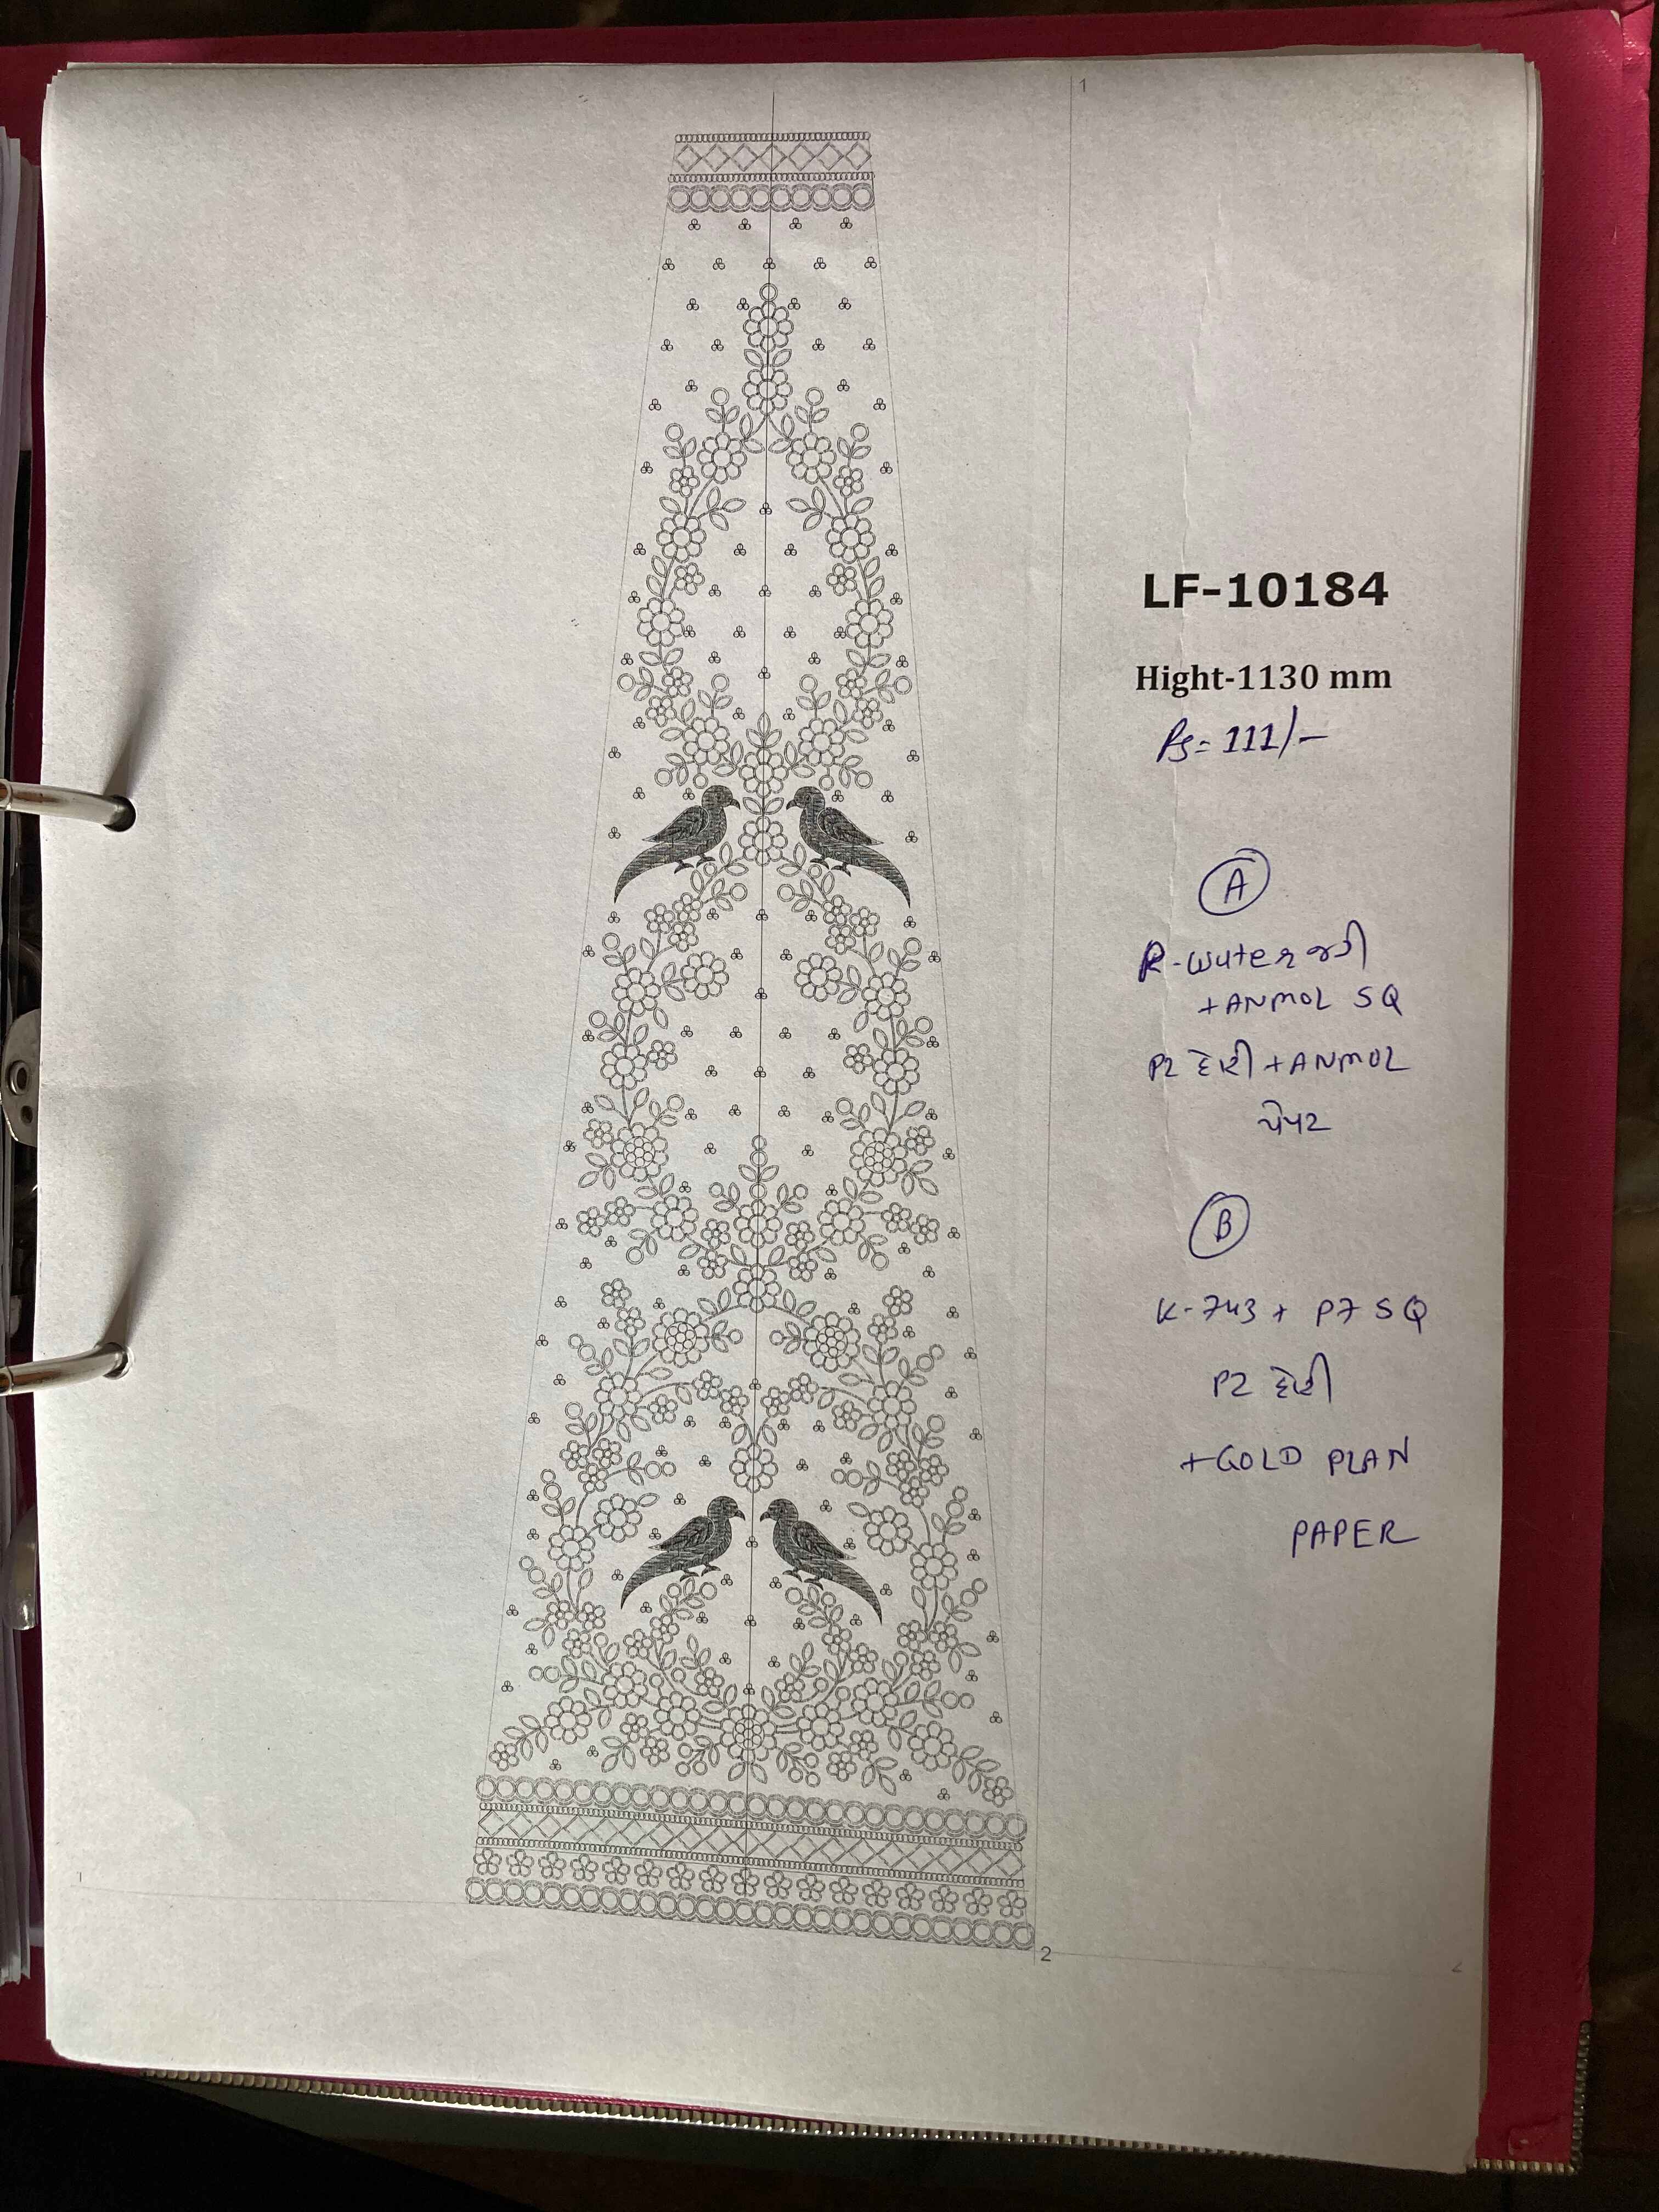 1
LF-10184
Hight-1130 mm
Rs= 111/-
A
R-water જરી
+ANMOL SQ
P2 દોરી +ANMOL
પેપર
B
K-743 + P7 SQ
P2 દોરી
+GOLD PLAN
PAPER
1
2
2